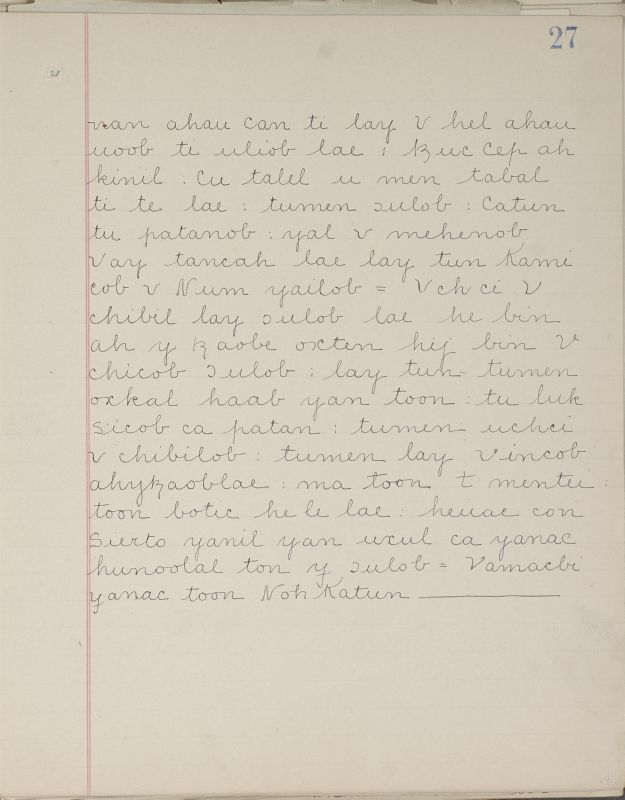 27
van ahau can ti lay v hel ahau
uoob ti uliob lae ; ꜩuc cep ah
kinil : Cu talel u men tabal
ti te lae : tumen ɔulob : Catun
tu patanob : yal v mehenob
vay tancah lae lay tun Kami
cob v Num yailob = Vch ci V
chibil lay ɔulob lae he bin
ah y ꜩ aobe oxten hij bin V
chicob ɔulob : lay tun tumen
oxkal haab yan toon : tu luk
sicob ca patan : tumen uchci
v chibilob : tumen lay vincob
ahyꜩaoblae : ma toon t mentei :
toon botic he le lae : heuac con
Sierto yanil yan uxul ca yanac
hunoolal ton y ɔulob = Vamacbi
yanac toon Noh Katun